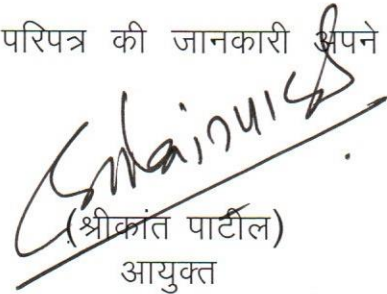 परिपत्र की जानकारी अपने
(श्रीकांत पाटील)
आयुक्त